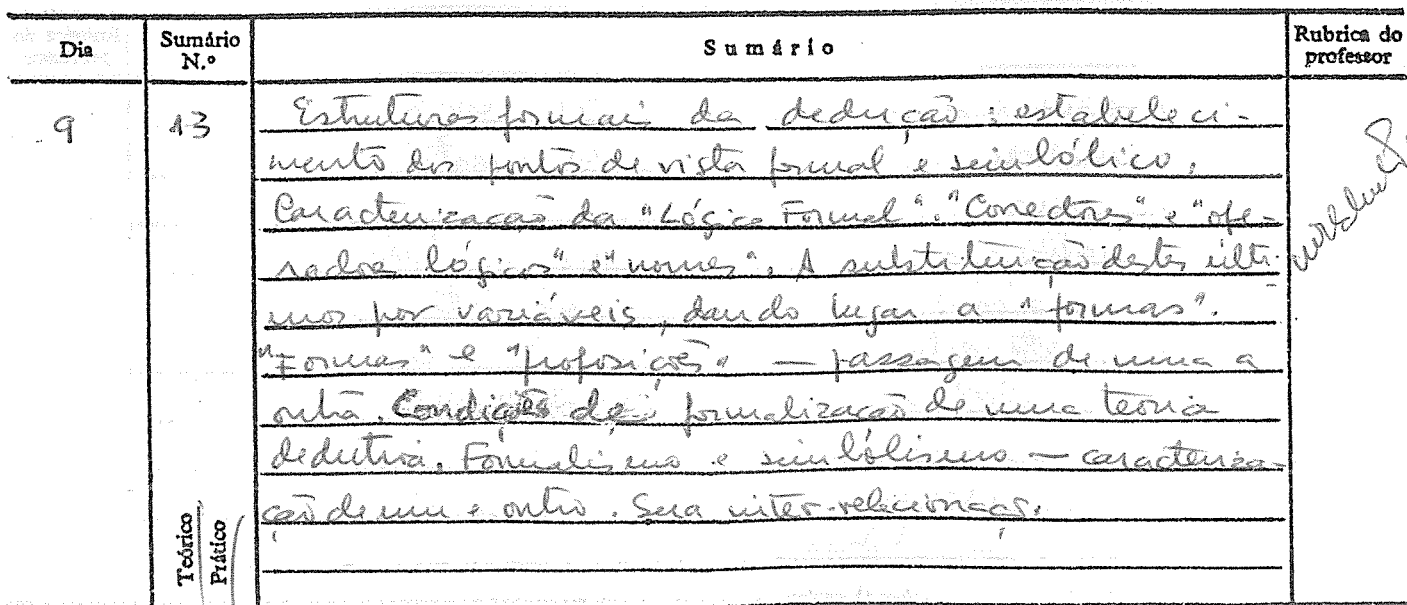 Dia Sumário N.º Sumário Rubrica do professor
9 13 Estruturas formais da dedução: estabeleci-
mento dos pontos de vista formal e simbólico.
Caracterização da "Lógica Formal". "Conectores" e "ope-
radores lógicos" e "nomes". A substituição destes últi-
mos por variáveis, dando lugar a "formas".
"Formas" e "proposições" — passagem de uma a
outra. Condições de formalização de uma teoria
dedutiva. Formalismo e simbolismo — caracteriza-
ção de um e outro. Sua inter-relacionação.
Teórico
Prático